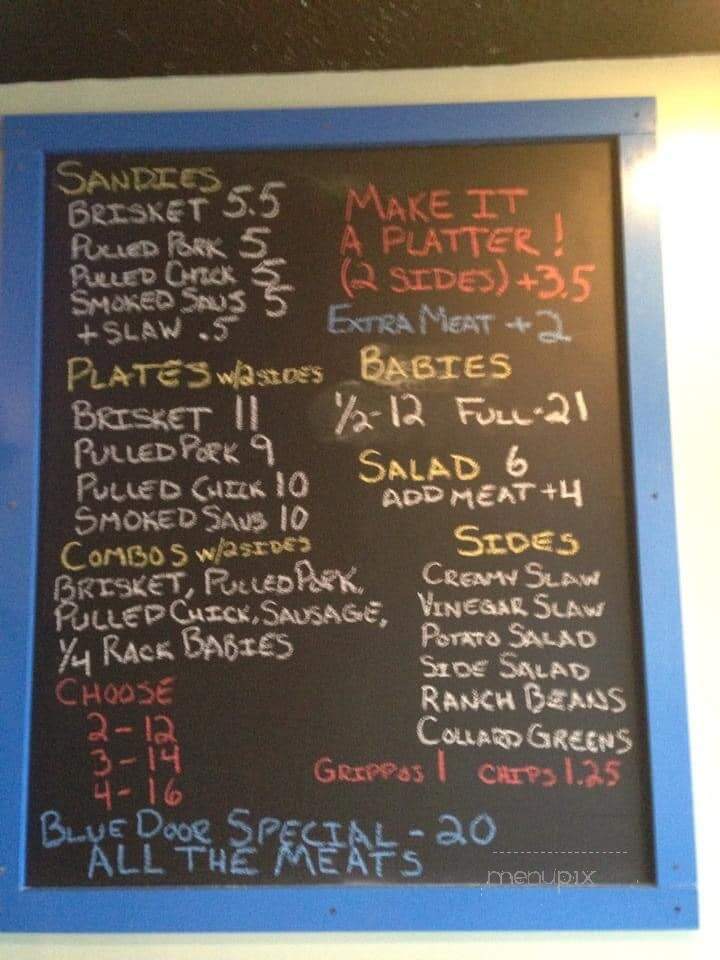 SANDIES
BRISKET 5.5
PULLED PORK 5
PULLED CHICK 5
SMOKED SAUS 5
+ SLAW .5
MAKE IT
A PLATTER!
(2 SIDES) +3.5
EXTRA MEAT +2
PLATES w/2 SIDES
BRISKET 11
PULLED PORK 9
PULLED CHICK 10
SMOKED SAUS 10
BABIES
1/2-12 FULL-21
SALAD 6
ADD MEAT +4
COMBOS w/2 SIDES
BRISKET, PULLED PORK,
PULLED CHICK, SAUSAGE,
1/4 RACK BABIES
CHOOSE
2-12
3-14
4-16
SIDES
CREAMY SLAW
VINEGAR SLAW
POTATO SALAD
SIDE SALAD
RANCH BEANS
COLLARD GREENS
GRIPPOS 1 CHIPS 1.25
BLUE DOOR SPECIAL - 20
ALL THE MEATS
menupix